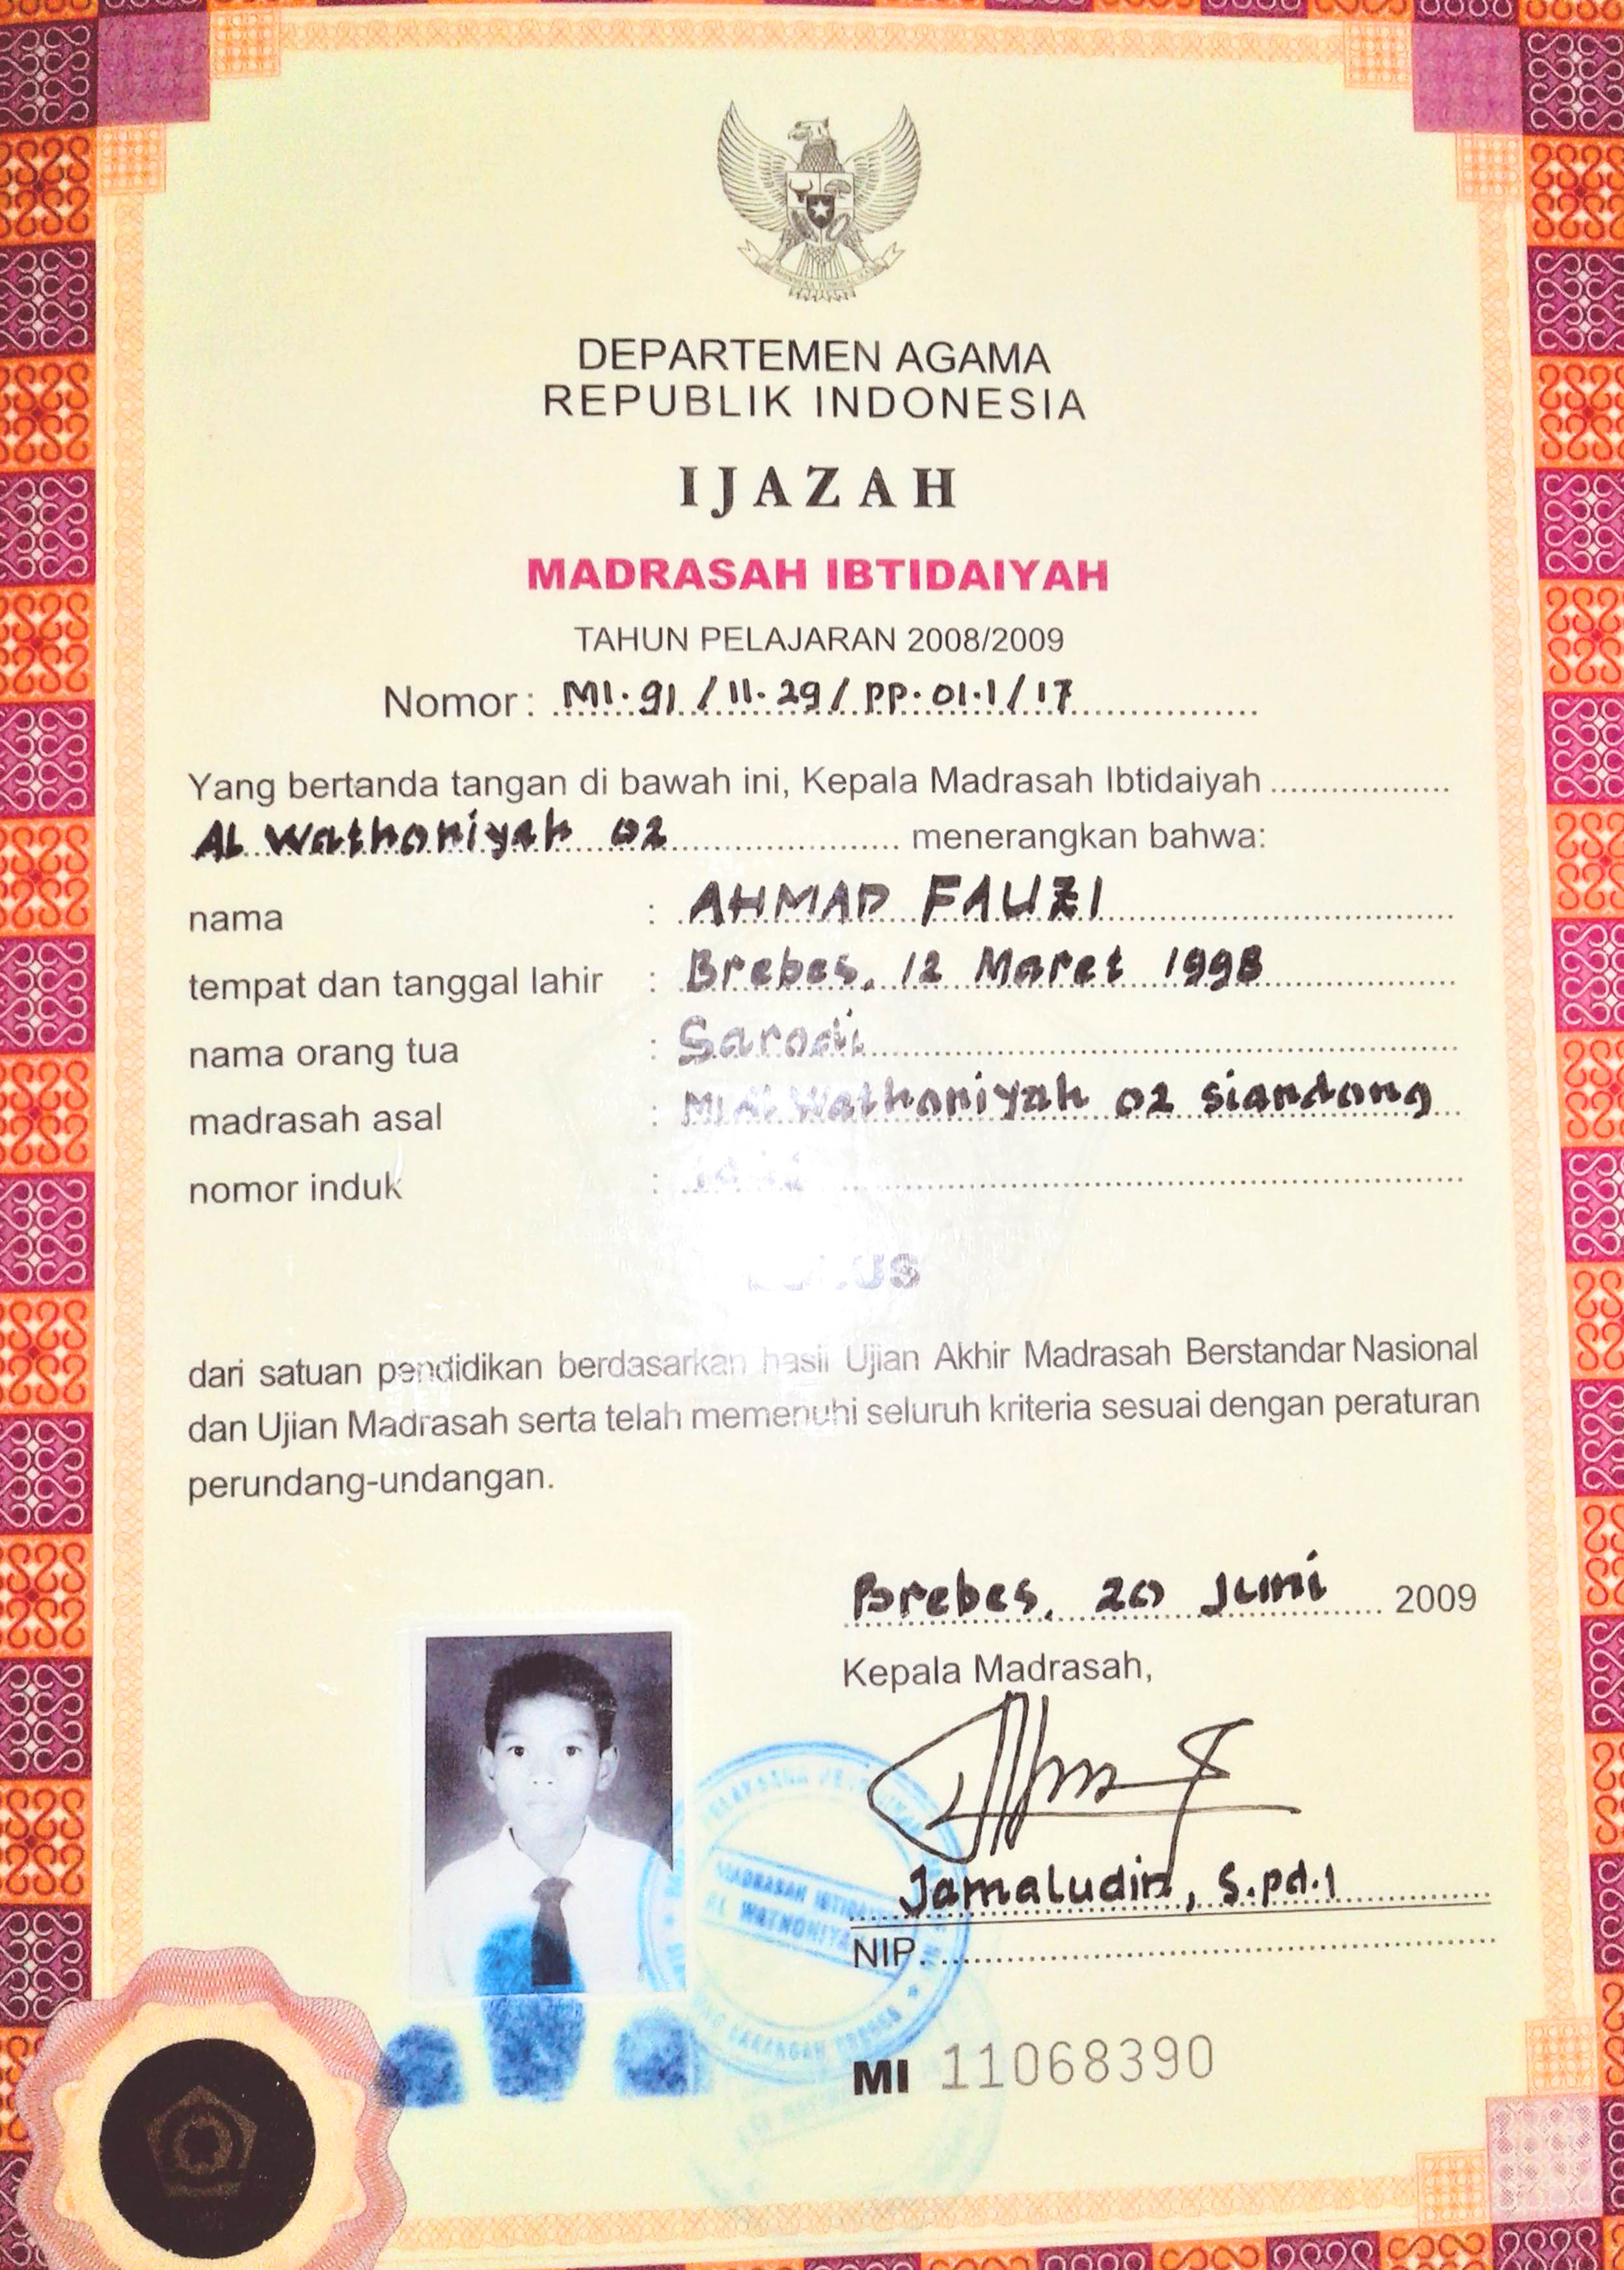 DEPARTEMEN AGAMA
REPUBLIK INDONESIA
IJAZAH
MADRASAH IBTIDAIYAH
TAHUN PELAJARAN 2008/2009
Nomor : MI.91 / 11.29 / PP.01.1 / 17
Yang bertanda tangan di bawah ini, Kepala Madrasah Ibtidaiyah
AL Wathoniyah 02 menerangkan bahwa:
nama : AHMAD FAUZI
tempat dan tanggal lahir : Brebes, 12 Maret 1998
nama orang tua : Sarodi
madrasah asal : MI AL Wathoniyah 02 Siandong
nomor induk :
LULUS
dari satuan pendidikan berdasarkan hasil Ujian Akhir Madrasah Berstandar Nasional
dan Ujian Madrasah serta telah memenuhi seluruh kriteria sesuai dengan peraturan
perundang-undangan.
Brebes, 20 Juni 2009
Kepala Madrasah,
Jamaludin, S.Pd.I
NIP.
MADRASAH IBTIDAIYAH
AL WATHONIYAH
MI 11068390